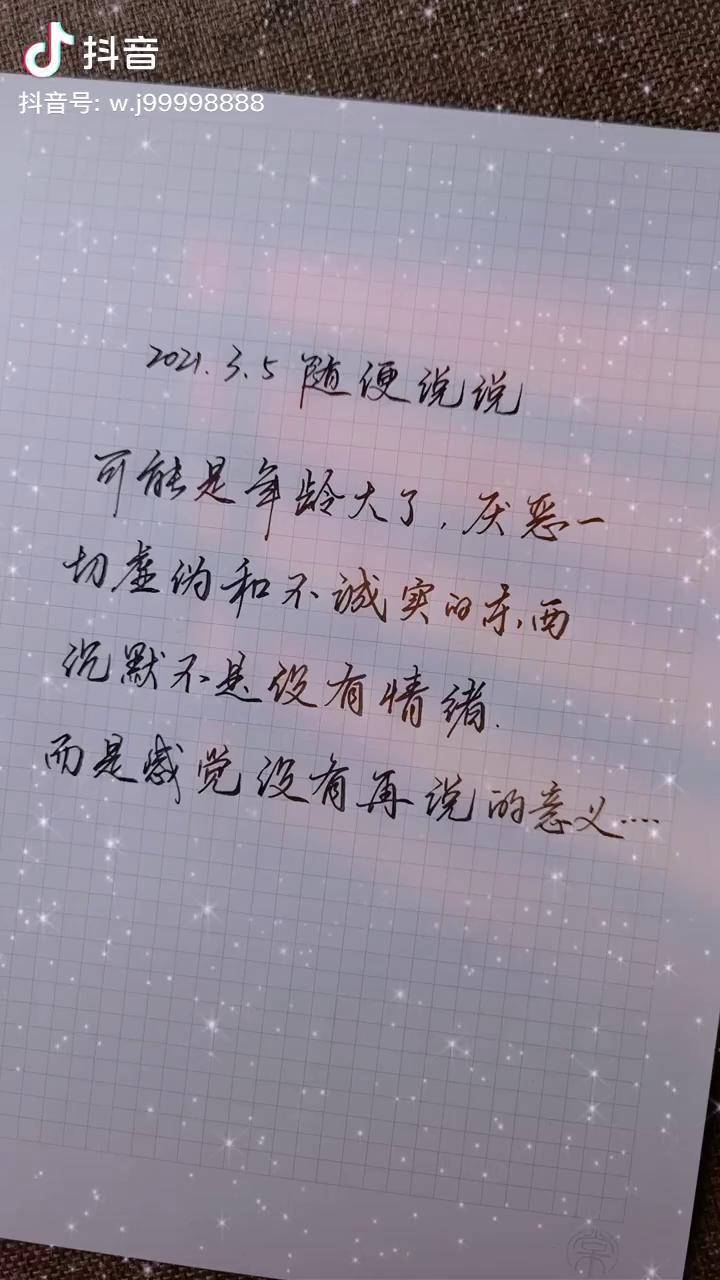 抖音
抖音号: w.j99998888
2021.3.5 随便说说
可能是年龄大了,厌恶一
切虚伪和不诚实的东西
沉默不是没有情绪.
而是感觉没有再说的意义....